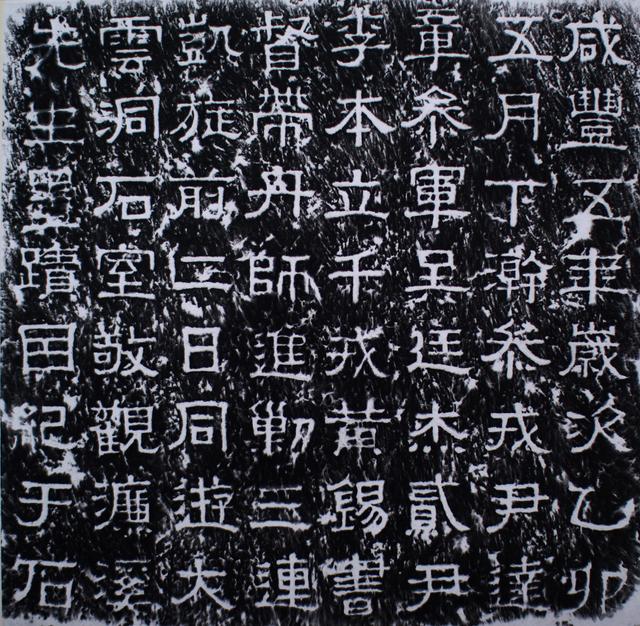 咸豐五年歲次乙卯
五月下澣參戎尹達
章參軍吳廷杰貳尹
李本立千戎黃錫書
督帶舟師進勦三連
凱旋前二日同遊大
雲洞石室敬觀濂溪
先生墨蹟因紀于石